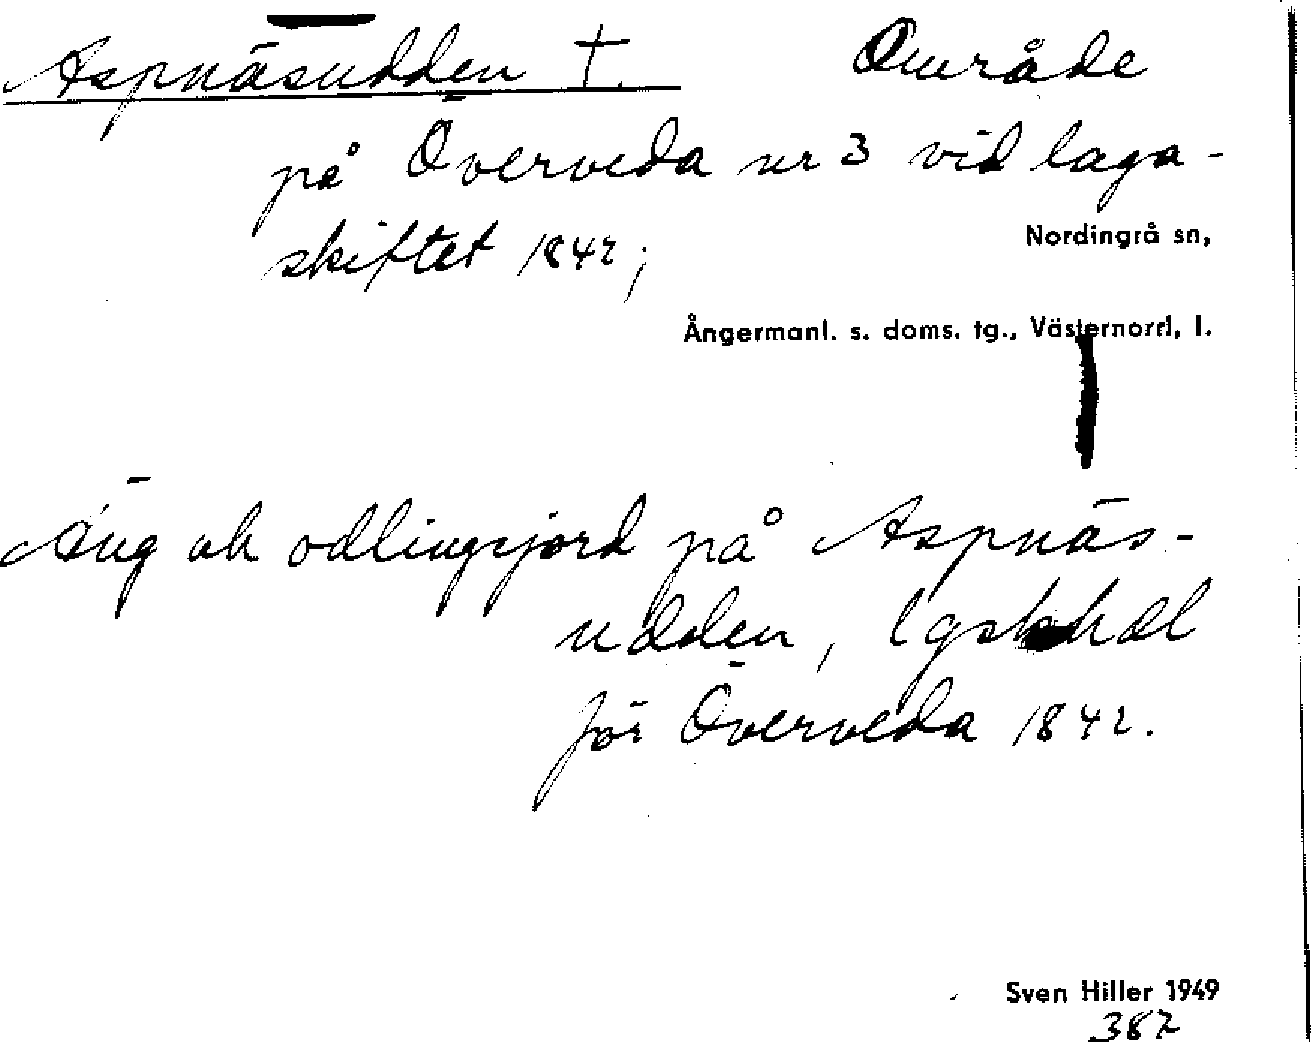 Aspnäsudden †. Område
på Överveda nr 3 vid laga-
skiftet 1842;
Nordingrå sn,
Ångermanl. s. doms. tg., Västernorrl. l.
Äng ock odlingsjord på Aspnäs-
udden, lgskhdl
för Överveda 1842.
Sven Hiller 1949
382